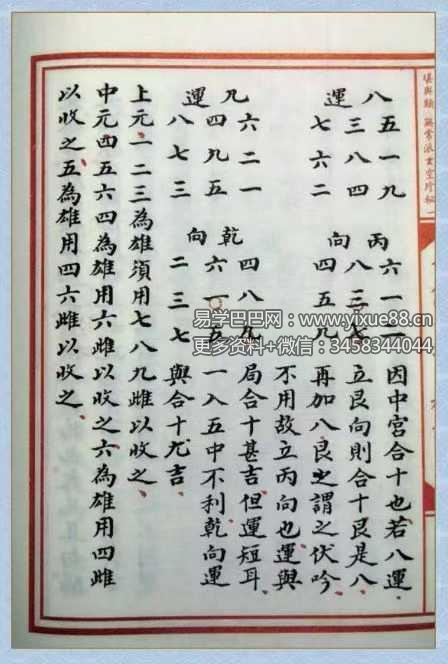 堪輿類 無常派玄空珍秘 一
八 五一九 丙 六一二 因中宮合十也若八運
運 三八四 向 八三七 立艮向則合十艮是八
七六二 四五九 再加八艮之謂之伏吟
不用故立丙向也運與
九 六二一 乾 四八九 局合十甚吉但運短耳
四九五 六一五 一入五中不利乾向運
運 八七三 向 二三七 與合十尤吉
上元一二三為雄須用七八九雌以收之
中元四五六四為雄用六雌以收之六為雄用四雌
以收之五為雄用四六雌以收之
易学巴巴网:www.yixue88.cn
更多资料+微信:3458344044